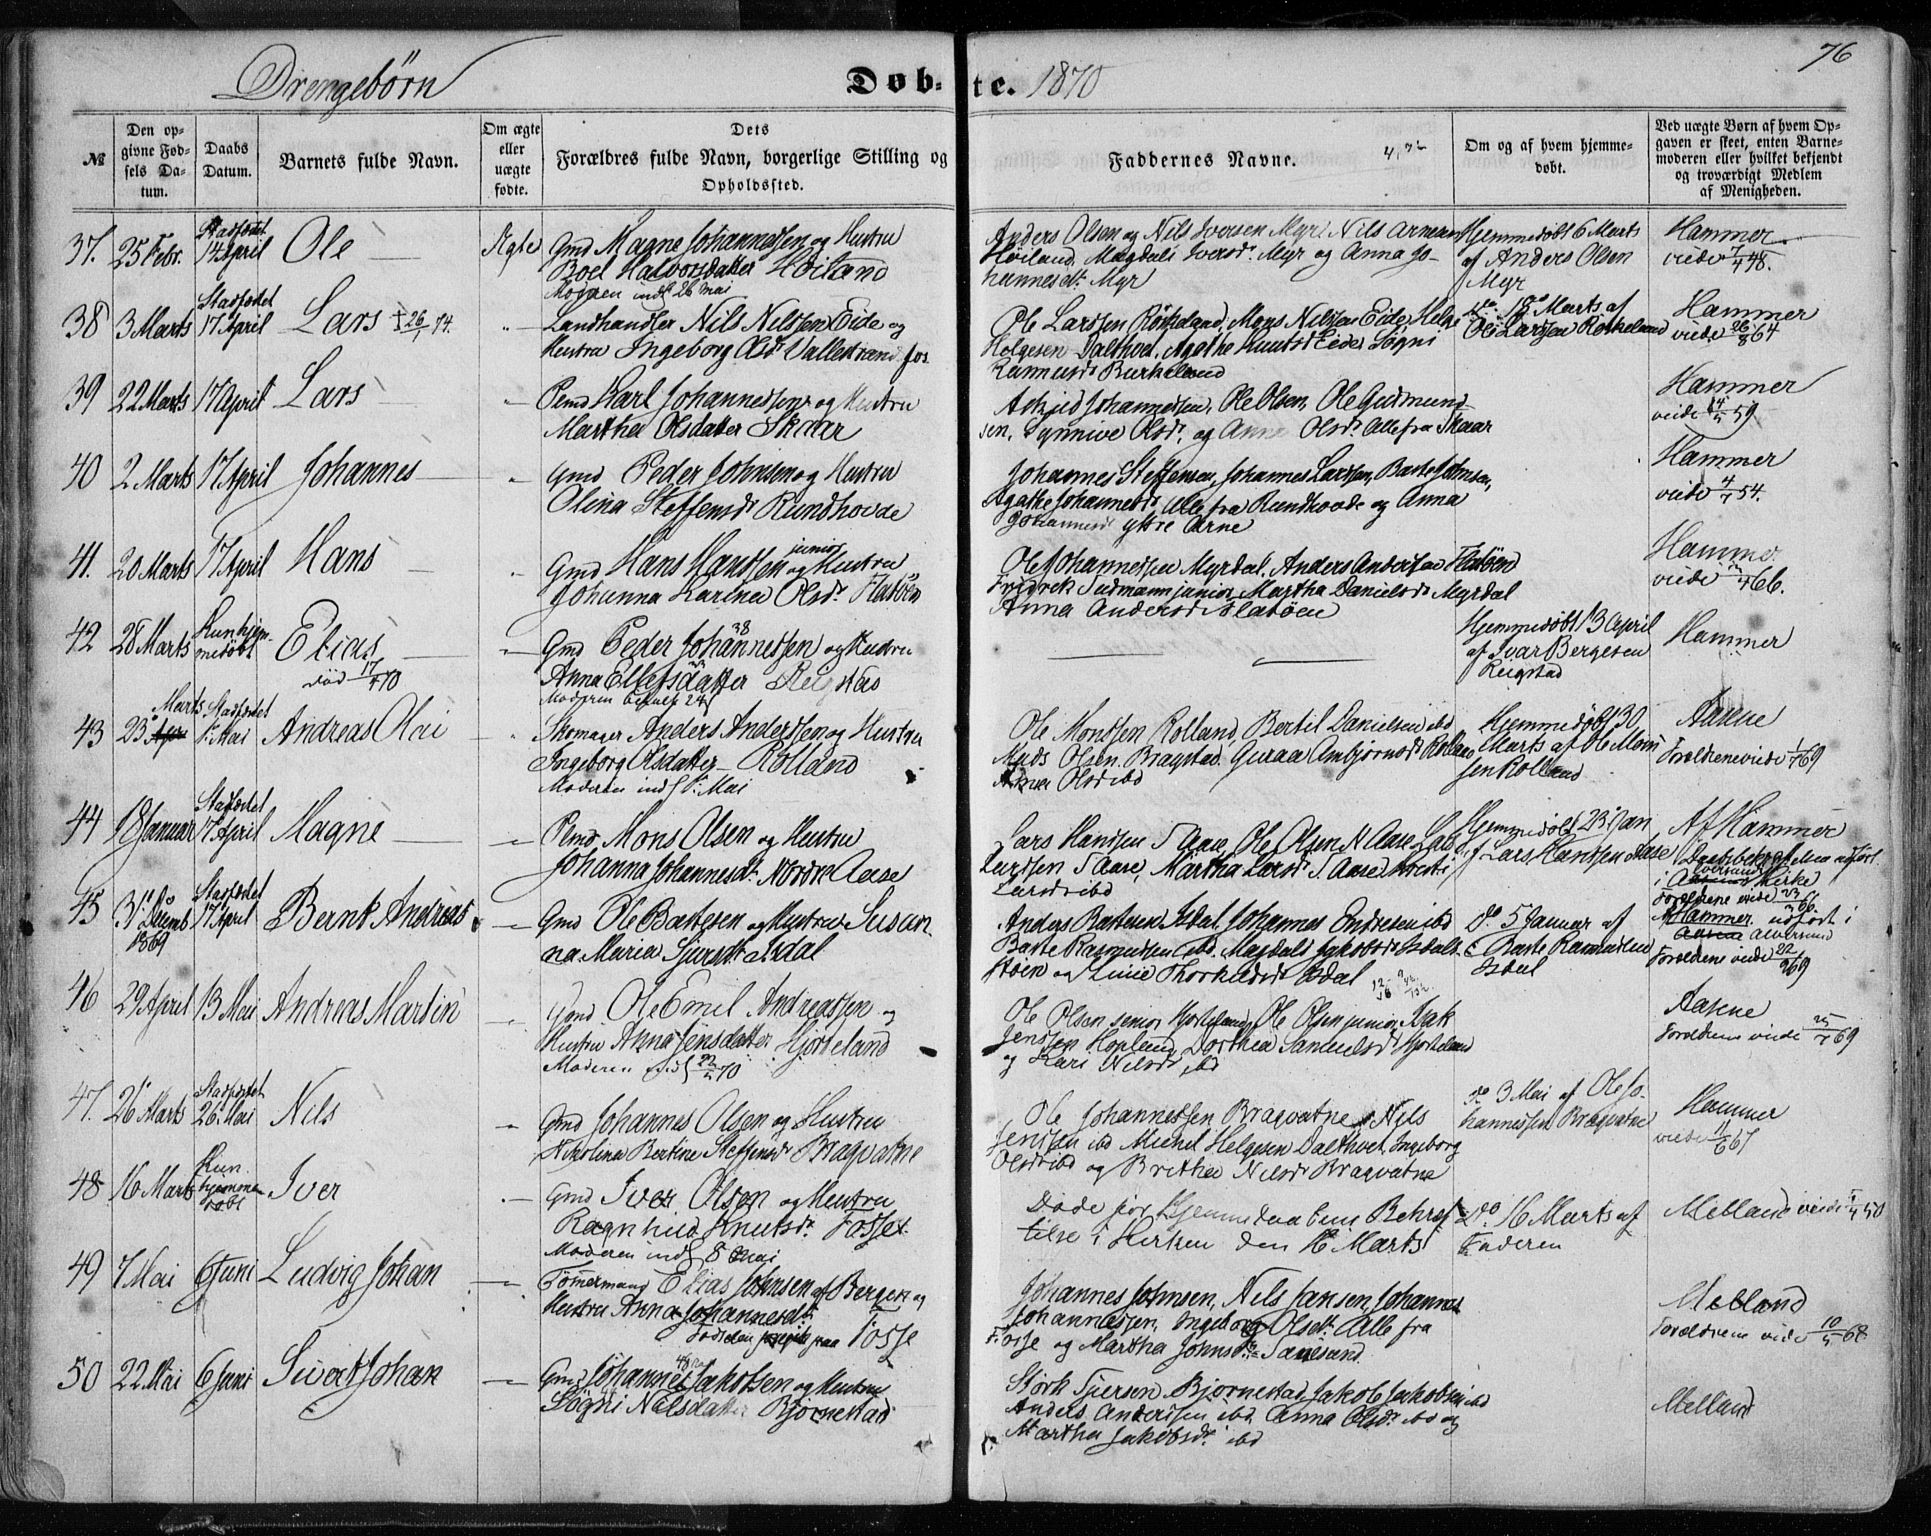 76
Drengebørn
Døbte. 1870
№
Den opgivne Fødsels Datum.
Daabs Datum.
Barnets fulde Navn.
Om ægte eller uægte fødte.
Dets Forældres fulde Navn, borgerlige Stilling og Opholdssted.
Faddernes Navne.
Om og af hvem hjemmedøbt.
Ved uægte Børn af hvem Opgaven er skeet, enten Barnemoderen eller hvilket bekjendt og troværdigt Medlem af Menigheden.
37. 25 Febr. Stadfæstet 14 April Ole Ægte
Gmd Magne Johannessen og Hustru
Boel Halvorsdatter Høiland
indl 26 Mai
Anders Olsen og Nils Iversen Myr, Nils Arnesen
Høiland, Magdali Iversdr Myr og Anna Jo-
hannesdr Myr
Hjemmedøbt 6 Marts
af Anders Olsen
Myr
Hammer
viede 48.
38 3 Marts Stadfæstet 17 April Lars † 26/ 74.
Landhandler Nils Nilssen Eide og
Hustru Ingeborg Olsdr Vallestrand
Ole Larssen Röskeland, Mons Nilssen Eide, Helge
Helgesen Dalthvet, Agathe Knutsdr Eide, Sögni
Rasmusdr Birkeland
do Marts af
Ole Larssen Röskeland
Hammer
viede 26/8 64
39 22 Marts 17 April Lars
Plmd Karl Johannessen og Hustru
Martha Olsdatter Skaar
Johannessen, Ole Olsen, Ole Gudmund-
sen, Synnive Olsdr, og Anna Olsdr. Alle fra Skaar
Hammer
viede 59
40 2 Marts 17 April Johannes
Gmd Peder Johnsen og Hustru
Olina Steffensdr Rundhovde
Johannes Steffensen, Johannes Larssen, Baste Johnsen,
Agathe Johannesdr Alle fra Rundhovde og Anna
Johannesdr ytre Arne
Hammer
viede 4/ 54.
41. 20 Marts 17 April Hans
Gmd Hans Hanssen junior og Hustru
Johanna Karina Olsdr. Flatöen
Ole Johannessen Myrdal, Anders Andersen Flatöen
Fredrik Tudmann junior, Martha Danielsdr Myrdal
Anna Andersdr Flatöen
Hammer
viede 66.
42 28 Marts Kun hjem-
medöbt Elias
död 17/4 70
Gmd Peder Johannessen og Hustru
38
Anna Ellefsdatter Reigstad
Hjemmedøbt 13 April
af Ivar Bergesen
Reigstad
Hammer
43 23 Marts Stadfæstet 1 Mai Andreas Olai
Skomager Anders Anderssen og Hustru
Ingeborg Olsdatter Rolland
Moderen indl 1 Mai
Ole Monssen Rolland, Bertil Danielsen ibd
Mads Olsen Bragstad, Guraa Ambjørnsdr Rolland
Anna Olsdr ibd
Hjemmedøbt 30
Marts af Ole Mons-
sen Rolland
Aasne
Forældrene viede 69
44 18 Januar Stadfæstet 17 April Magne
Plmd Mons Olsen og Hustru
Johanna Johannesdr. Nordre Aase
Lars Hanssen S Aase, Ole Olsen N Aase,
Larssen S Aase, Martha Larsdr S Aase,
Larsdr ibd
Hjemmedøbt 23 Jan
af Lars Hanssen Aase
Af Hammer
udført
i Kirke
Forældrene viede 66
45 31 Decemb 1869 Stadfæstet 17 April Bernt Andreas
Gmd Ole Bastesen og Hustru Susan-
na Maria Sjursdr Isdal
Anders Bastesen Isdal, Johannes Endresen ibd
Baste Rasmussen ibd, Magdali Jakobsdr Isdals-
støen og Lucie Thorkildsdr Isdal
do 5 Januar af
Baste Rasmussen
Isdal
Af Hammer udført i
Alversund
Forældrene viede 22/ 69
46 29 April 13 Mai Andreas Martin
Gmd Ole Emil Andreassen og
Hustru Anna Jensdatter Hjorteland
Moderen indl 22/5 70
Ole Olsen senior Hjorteland, Ole Olsen junior, Isak
Jenssen Hopland, Dorthea Samuelsdr Hjorteland
og Kari Nilsdr ibd
Aasne
Forældrene viede 69
47. 26 Marts Stadfæstet 26 Mai Nils
Gmd Johannes Olsen og Hustru
Nikolina Bertine Steffensdr Bragvatne
Ole Johannessen Bragvatne, Nils
Jenssen ibd, Mikkel Helgesen Dalthvet, Ingeborg
Olsdr ibd og Brithe Nilsdr Bragvatne
do 3 Mai af Ole Jo-
hannessen Bragvatne
Hammer
viede 11/6 67
48 16 Marts Kun hjemme
døbt Iver
Gmd Iver Olsen og Hustru
Ragnhild Knutsdr Fosse
Moderen indl 8 Mai
Døde før Hjemmedaabens Bekræf-
telse i Kirken den 16 Marts
do 16 Marts af
Faderen
Melland viede 50
49 7 Mai 6 Juni Ludvig Johan
Tømmermand Elias Johnsen af Bergen og
Hustru Anna Johannesdr.
Fosse
Johannes Johnsen, Nils Jansen, Johannes
Johannessen, Ingeborg Olsdr. Alle fra
Fosse og Martha Johnsdr
Melland
Forældrene viede 10/5 68
50 22 Mai 6 Juni Sivert Johan
Gmd Johannes Jakobsen og Hustru
Sögni Nilsdatter Bjørnestad
Störk Sjursen Bjørnestad, Jakob Jakobsen ibd
Anders Anderssen ibd, Anna Olsdr ibd og
Martha Jakobsdr. ibd
Melland